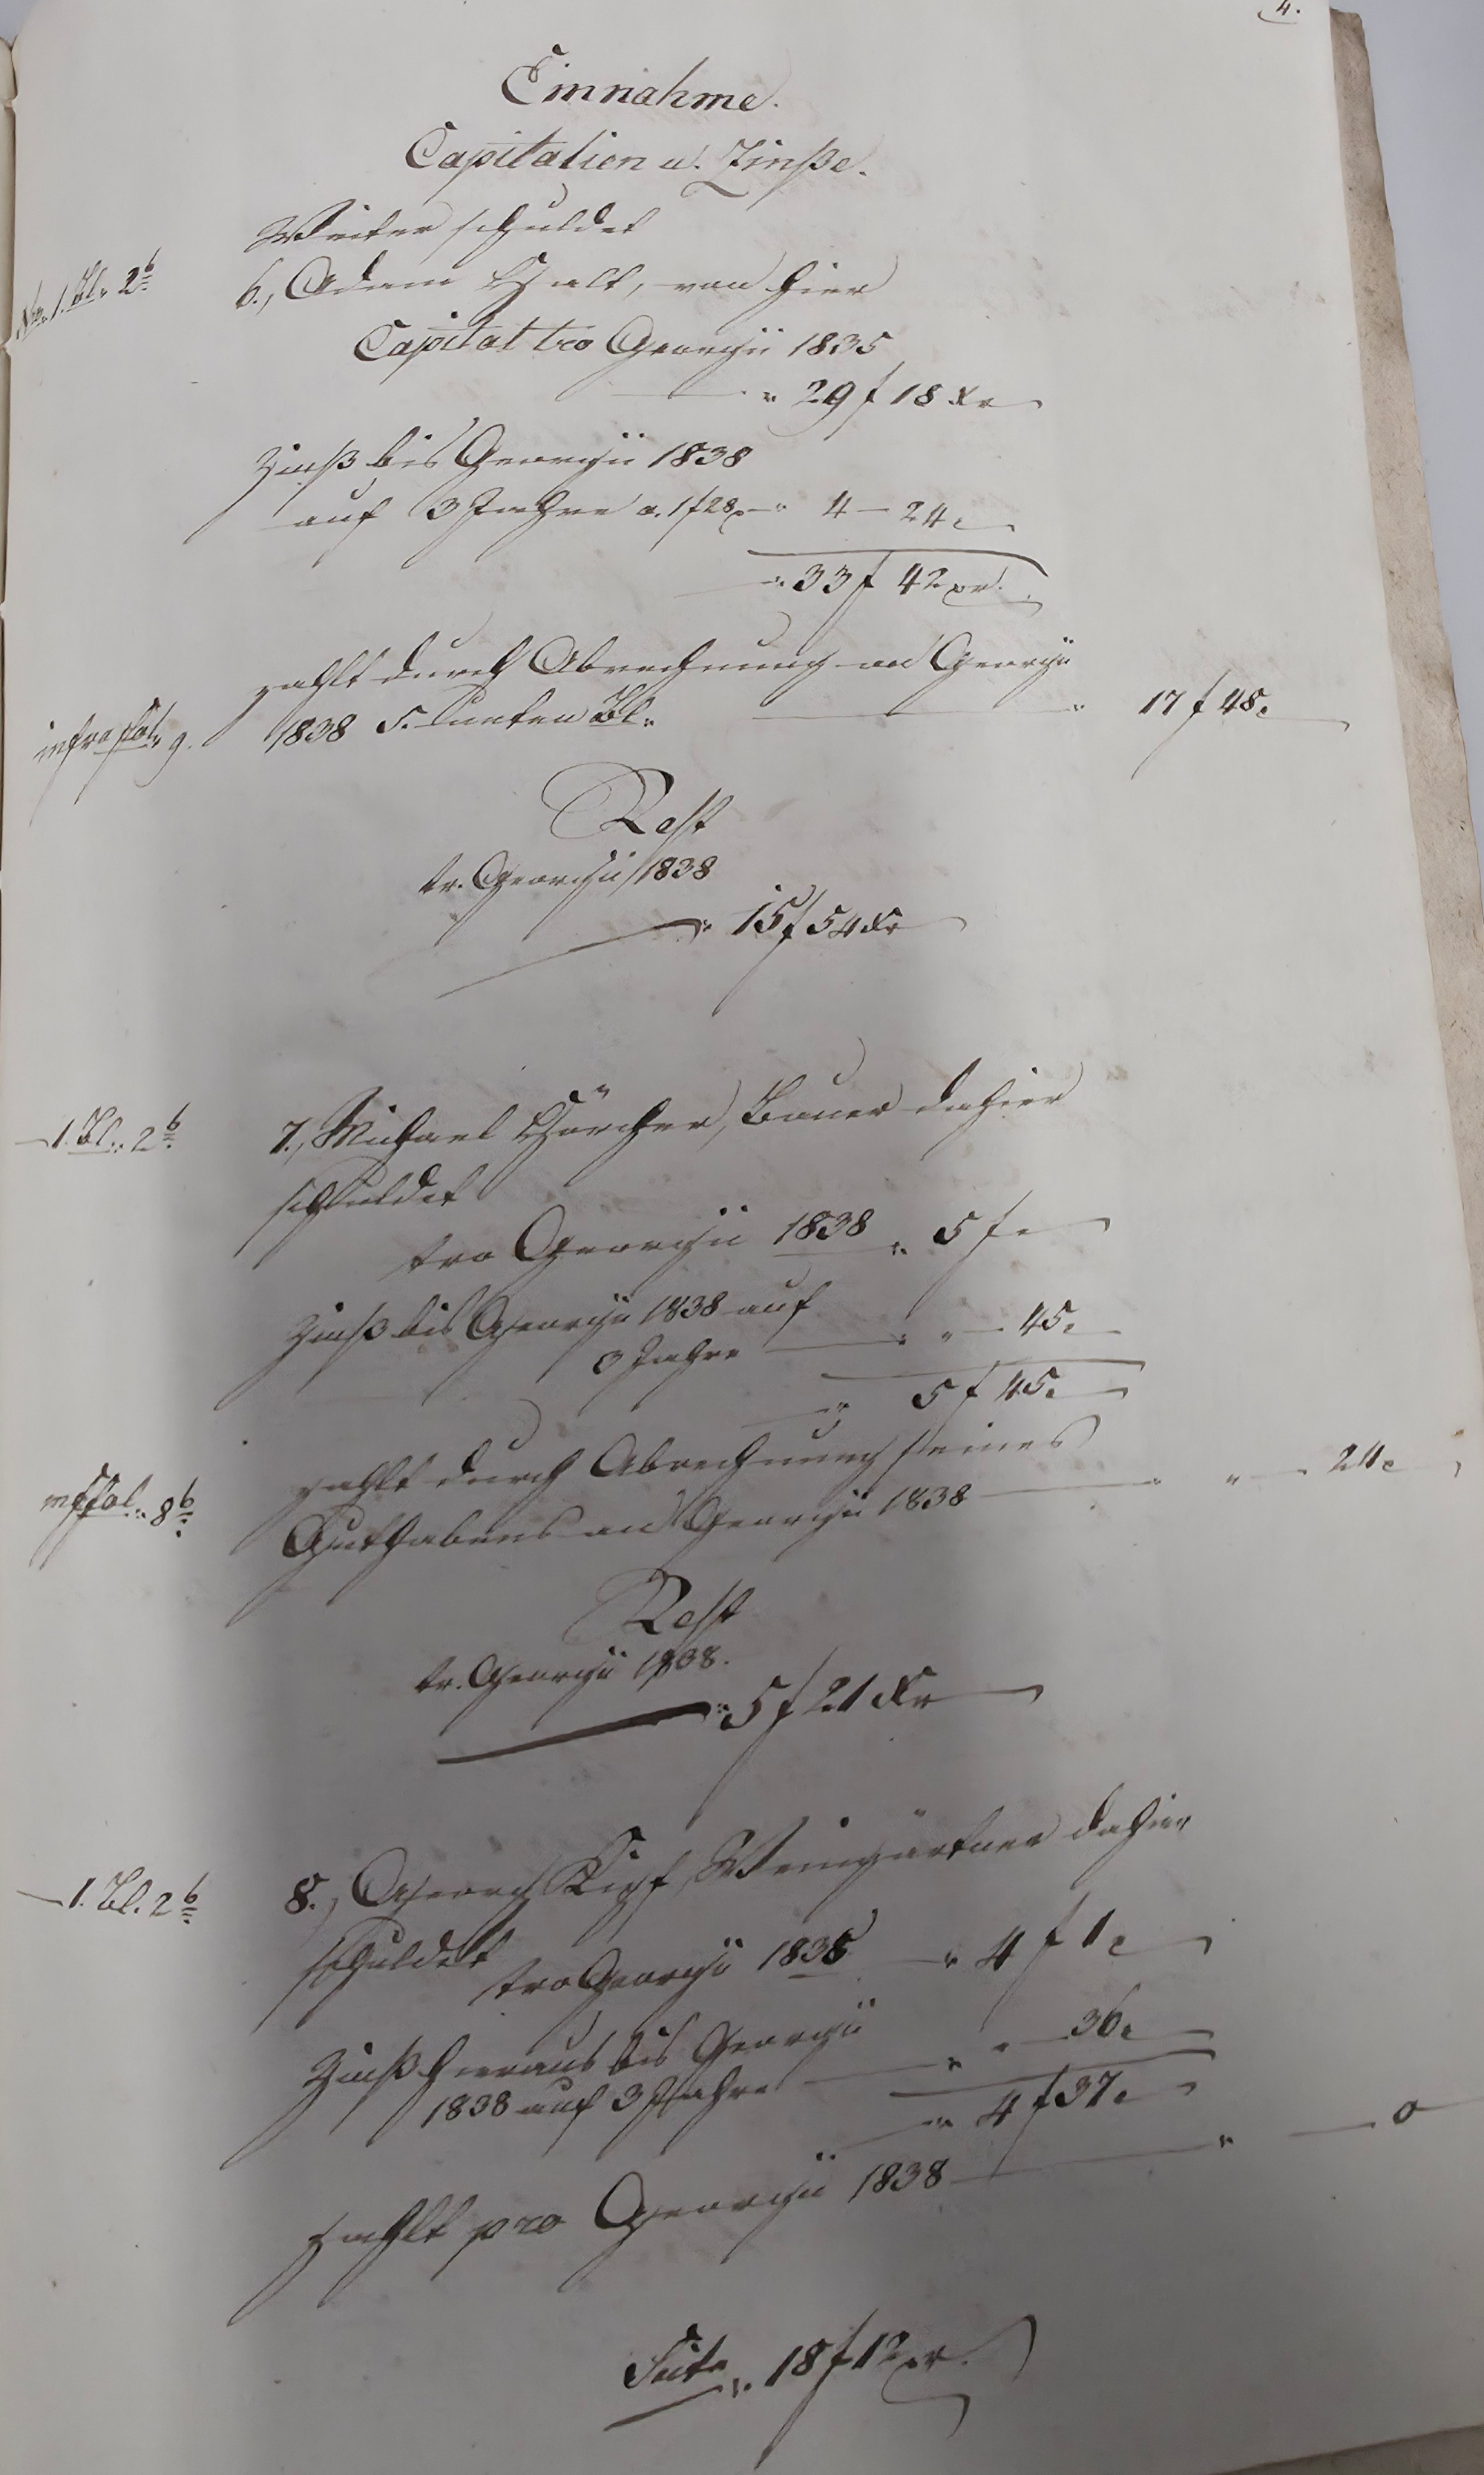 4.
Einnahme.
Capitalien u. Zinße.
Weiter schuldet
No. 1. Bl. 2b 6., Adam Halt, von hier
Capital tro Georgii 1835
29 f 18 Xr
Zinß bis Georgii 1838
auf 3 Jahre a. 1 f 28 x 4 - 24.
33 f 42 xr.
zahlt durch Abrechnung an Georgii
infra fol. 9. 1838 S. unten Bl. 17 f 48.
Rest
tr. Georgii 1838
15 f 54 Xr
1. Bl. 2b 7., Michael Hörcher, Bauer dahier
schuldet
tro Georgii 1838 5 f -
Zinß bis Georgii 1838 auf
3 Jahre " - 45.
5 f 45.
zahlt durch Abrechnung seines
fol. 8b Guthabens an Georgii 1838 " - 24.
Rest
tr. Georgii 1838.
5 f 21 Xr
1. Bl. 2b 8., Georg Kipf, Weingärtner dahier
schuldet
tro Georgii 1835 4 f 1.
Zinß hieraus bis Georgii
1838 auf 3 Jahre " - 36.
4 f 37.
zahlt pro Georgii 1838 " - 0
Seite 18 f 12 xr.